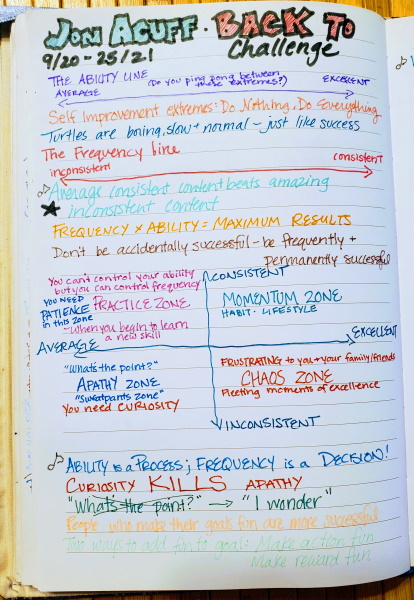 JON ACUFF · BACK TO
9/20-25/21 Challenge
THE ABILITY LINE (Do you ping pong between these extremes?)
AVERAGE EXCELLENT
Self Improvement extremes: Do Nothing. Do Everything
Turtles are boring, slow + normal - just like success
The Frequency Line
inconsistent consistent
Average consistent content beats amazing
inconsistent content
FREQUENCY x ABILITY = MAXIMUM RESULTS
Don't be accidentally successful - be frequently +
permanently successful
You can't control your ability
but you can control frequency
YOU NEED
PATIENCE
in this zone
PRACTICE ZONE
~When you begin to learn
a new skill
CONSISTENT
MOMENTUM ZONE
HABIT · LIFESTYLE
AVERAGE
EXCELLENT
"What's the point?"
APATHY ZONE
"Sweatpants zone"
You need CURIOSITY
FRUSTRATING to you + your family/friends
CHAOS ZONE
Fleeting moments of excellence
INCONSISTENT
ABILITY is a PROCESS; FREQUENCY is a DECISION!
CURIOSITY KILLS APATHY
"What's the point?" → "I wonder"
People who make their goals fun are more successful
Two ways to add fun to goal: Make action fun
Make reward fun